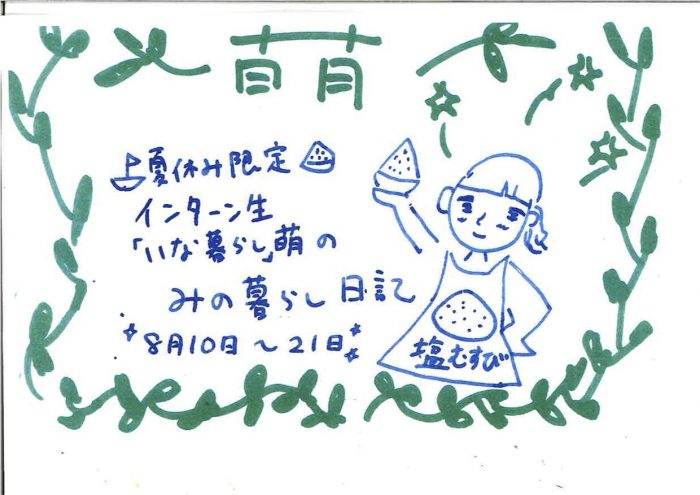 萌
夏休み限定
インターン生
「いな暮らし」萌の
みの暮らし日記
8月10日～21日
塩むすび